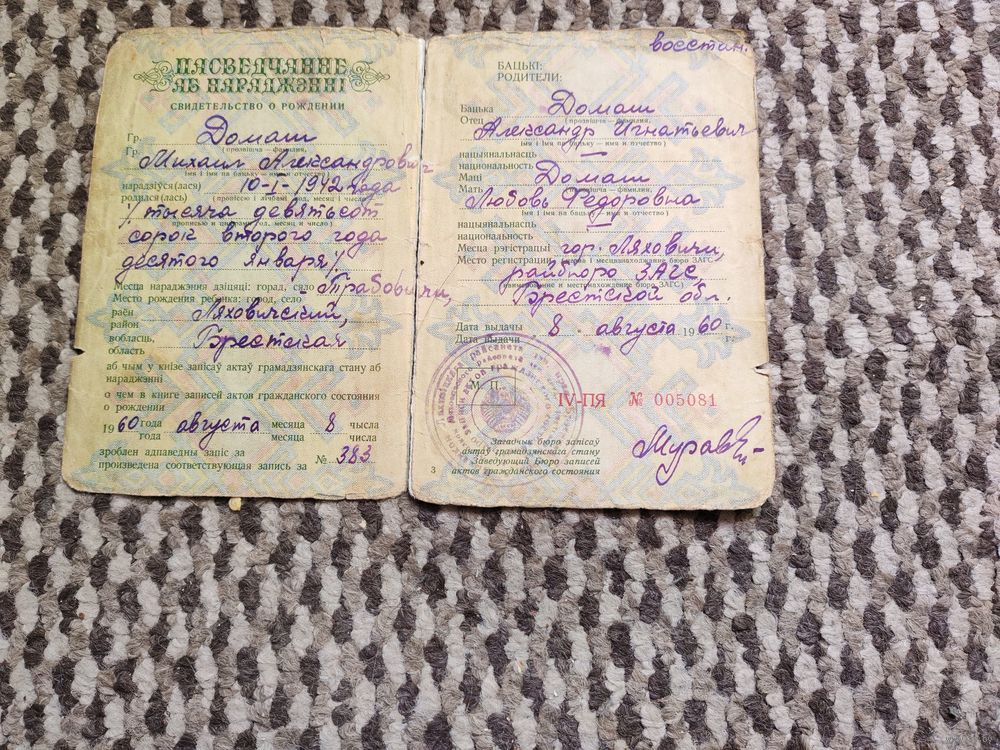 ПАСВЕДЧАННЕ
АБ НАРАДЖЭННІ
СВИДЕТЕЛЬСТВО О РОЖДЕНИИ
Гр. Домаш
(прозвішча — фамилия,
Гр. Михаил Александрович
імя і імя па бацьку — имя и отчество)
нарадзіўся(лася) 10-I-1942 года
родился(лась)
/тысяча девятьсот
сорок второго года
десятого января/
Месца нараджэння дзіцяці: горад, сяло Трабовичи,
Место рождения ребенка: город, село
раён Ляховичский,
район
вобласць, Брестская
область
аб чым у кнізе запісаў актаў грамадзянскага стану аб
нараджэнні
о чем в книге записей актов гражданского состояния
о рождении
1960 года августа месяца 8 чысла
года месяца числа
зроблен адпаведны запіс за
произведена соответствующая запись за № 383
восстан.
БАЦЬКІ:
РОДИТЕЛИ:
Бацька Домаш
Отец (прозвішча — фамилия,
Александр Игнатьевич
імя і імя па бацьку — имя и отчество)
нацыянальнасць —
национальность
Маці Домаш
Мать
Любовь Федоровна
імя і імя па бацьку — имя и отчество)
нацыянальнасць —
национальность
Месца рэгістрацыі гор. Ляховичи,
Место регистрации
райбюро ЗАГС,
Брестской обл.
Дата выдачы 8 августа 1960 г.
Дата выдачи г.
М. П.
IV-ПЯ № 005081
Загадчык бюро запісаў
актаў грамадзянскага стану
Заведующий Бюро записей
актов гражданского состояния
3